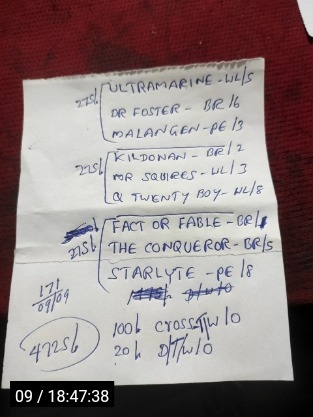 ULTRAMARINE - WL/5
275/- DR FOSTER - BR/6
MALANGEN - PE/3
KILDONAN - BR/2
275/- MR SQUIRES - WL/3
Q TWENTY BOY - WL/8
FACT OR FABLE - BR/1
275/- THE CONQUEROR - BR/5
STARLYTE - PE/8
171
09/09
4725/-
100/- CROSS T/W/O
20/- D/T/W/O
09 / 18:47:38